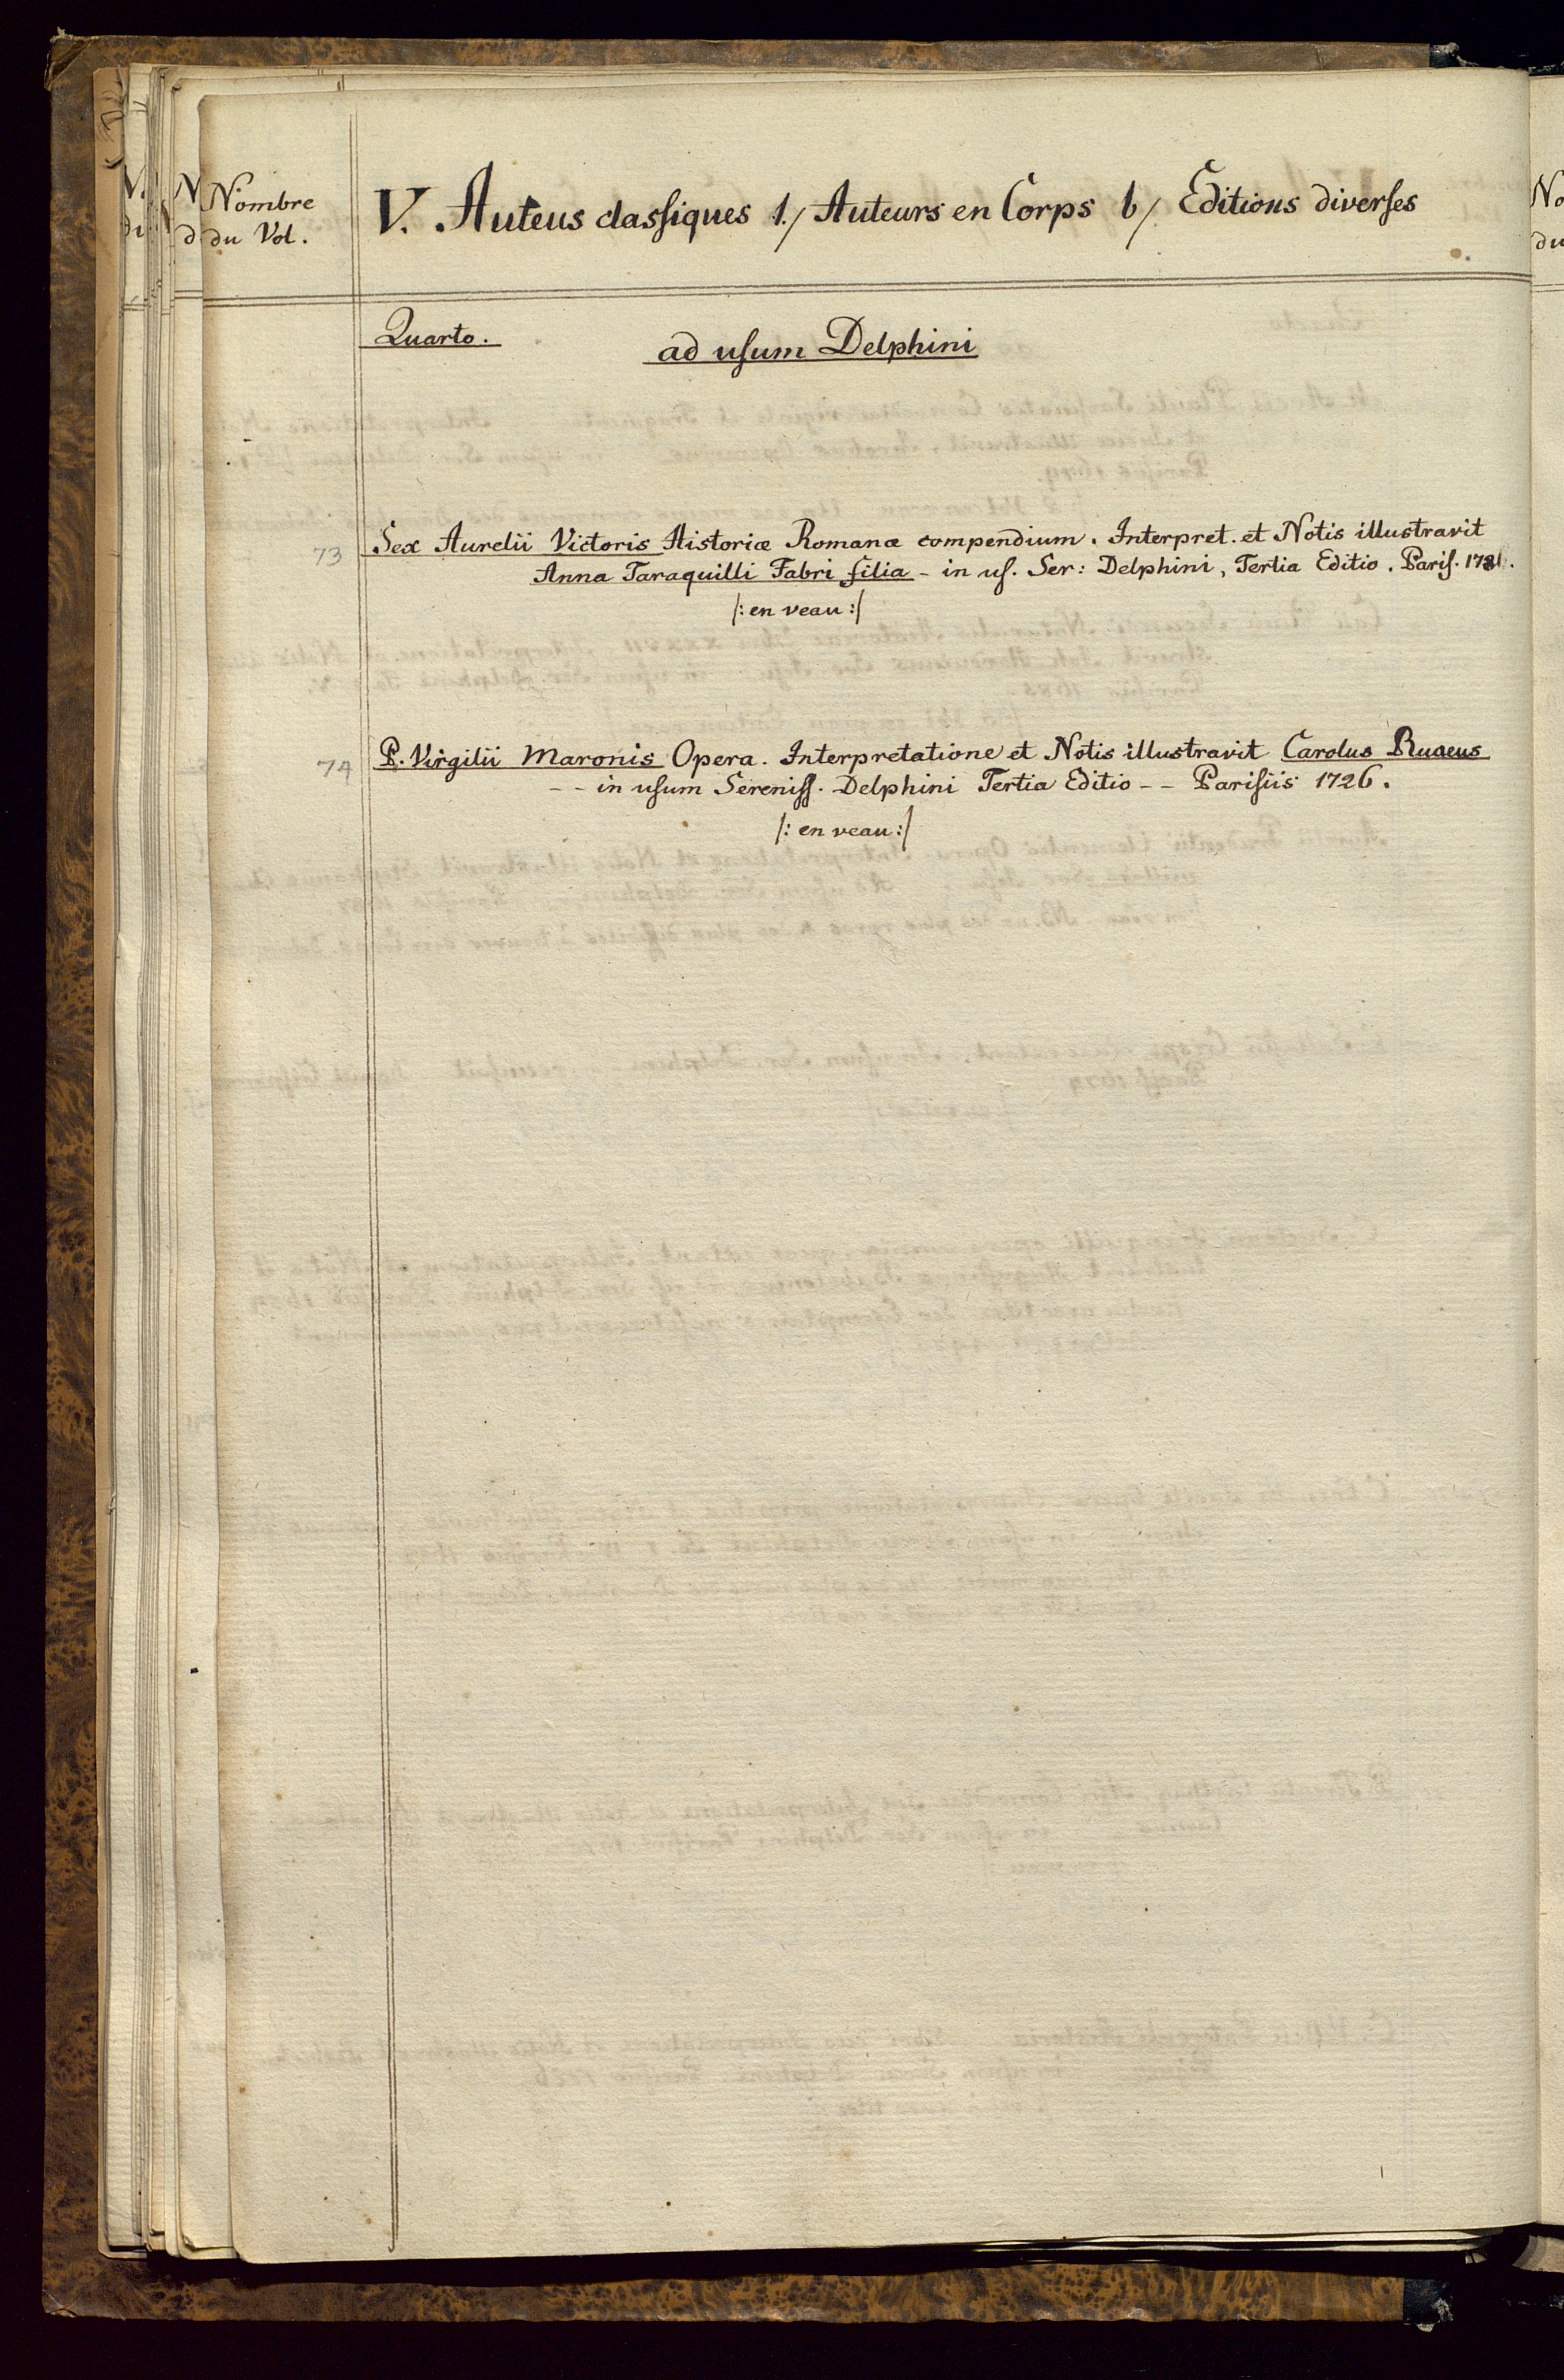 Nombre
du Vol.
V. Auteus classiques 1./ Auteurs en Corps b/ Editions diverses
Quarto.
ad usum Delphini
73 Sex Aurelii Victoris Historiæ Romanæ compendium. Interpret. et Notis illustravit
Anna Taraquilli Fabri filia - in us. Ser: Delphini, Tertia Editio. Paris.
/: en veau :/
74 P. Virgilii Maronis Opera. Interpretatione et Notis illustravit Carolus Ruaeus
-- in usum Sereniss. Delphini Tertia Editio -- Parisiis 1726.
/: en veau :/